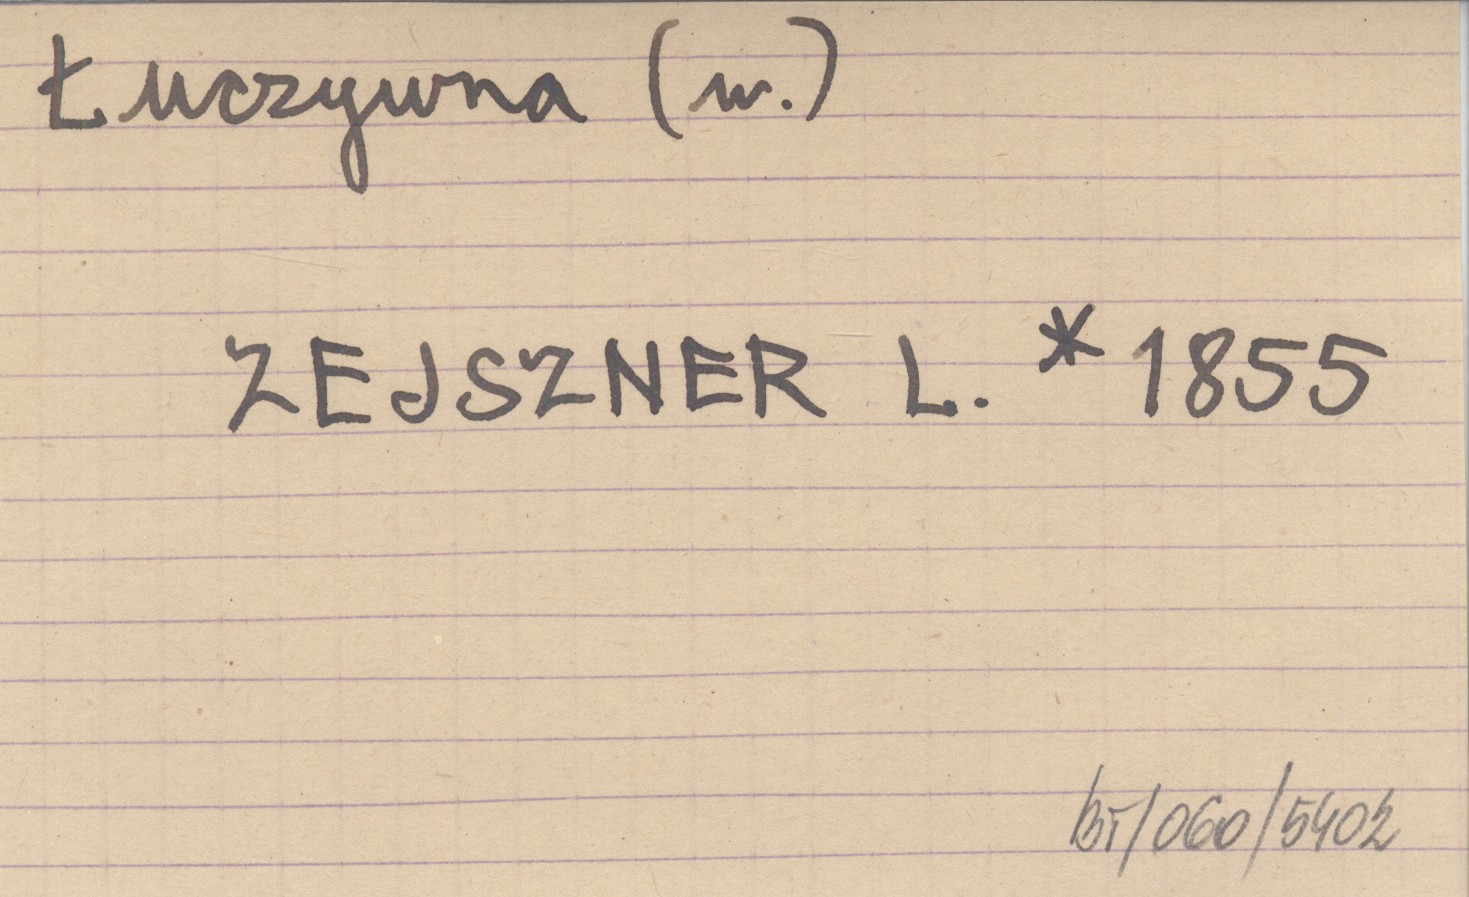 Łuczywna (w.)
ZEJSZNER L. * 1855
bt/060/5402